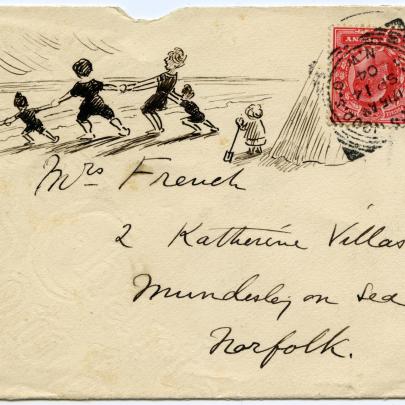 Mrs French
2 Katherine Villas
Mundesley on Sea
Norfolk.